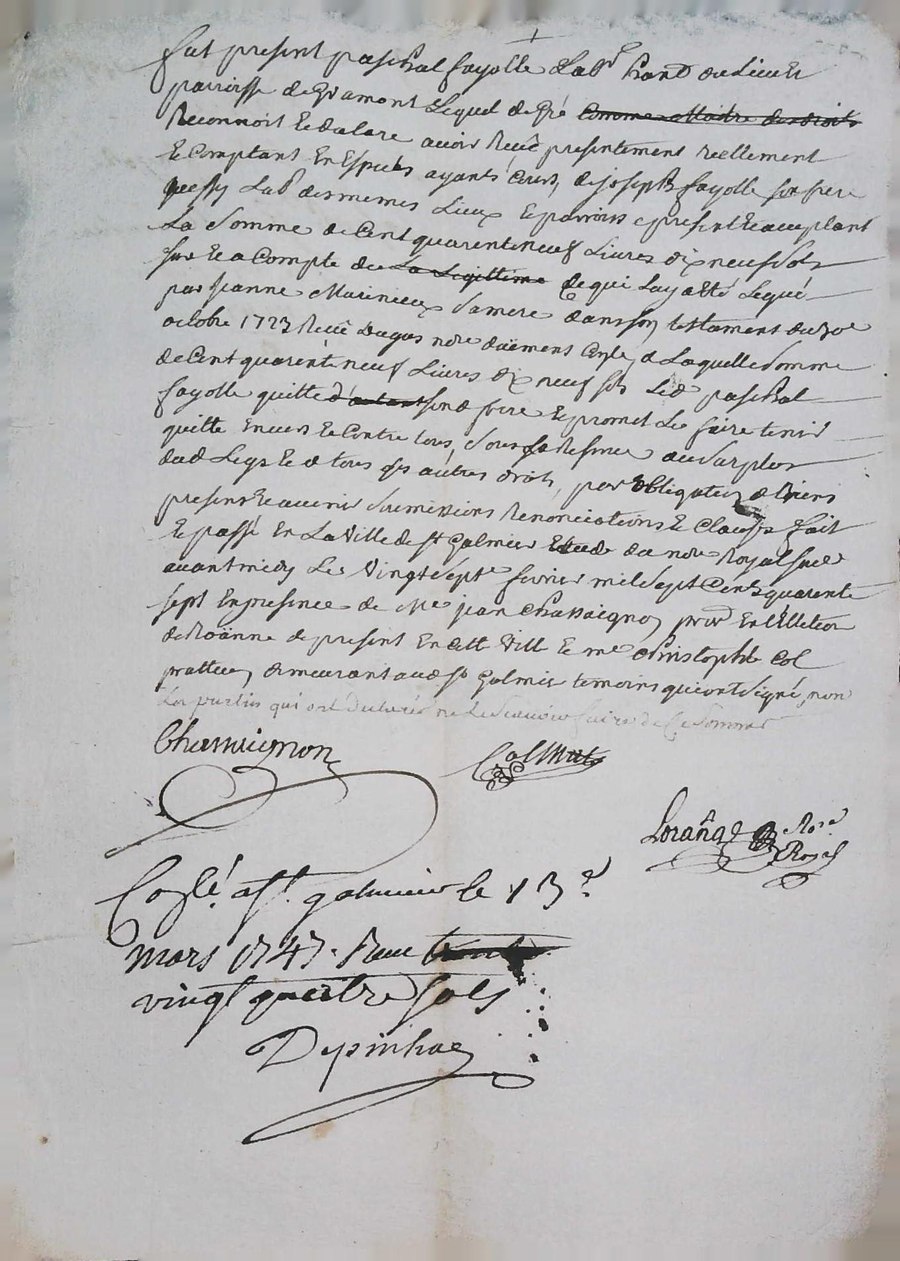 fut present paschal fayolle Lab.r hant du Lieu et
parroisse de Gramont Lequel de gré comme Maitre des droits
Reconnoit et declare avoir Receu presentement reellement
et Comptant En Especes ayants Cours, de joseph fayolle son frere
aussy Lab.r des memes Lieux et parroisse present et acceptant
La Somme de Cent quarente neuf Livres dix neuf sols
sur et a Compte de La Legittime Ce qui Luy a été Legué
par jeanne Marinieux sa mere dans son testament du 30e
octobre 1727 Receu Dugas no.re düement Con.lé, de Laquelle Somme
de Cent quarente neuf Livres dix neuf sols Led. paschal
fayolle quitte d'autant sond. frere et promet Le faire tenir
quitte Envers et Contre tous, sous La Reserve du surplus
dud. Legs et de tous ses autres droits, par obligation de Biens
presens et avenir soumissions Renonciations et Clauses fait
et passé En La Ville de St Galmier Etude du no.re Royal sous.né
avant midy Le Vingt sept.e fevrier mil sept Cent quarente
sept En presence de Me jean Chassaignon proc.r En L'Election
de Roänne de present En cette Ville et me Christophle Col
pratticien demeurant aud. St Galmier temoins qui ont signé, non
Les parties qui ont declaré ne Le scavoir faire de Ce sommés
Chassaignon
Col
Lorange no.re Royal
Con.lé a St. galmier le 13e
mars 1747. Receu trente
vingt quatre sols
Depinhac